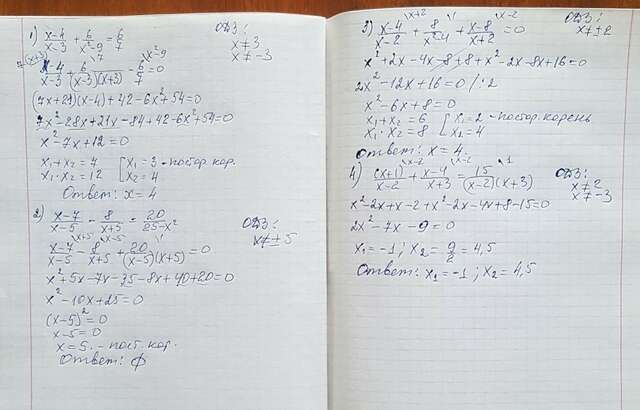 1) (x-4)/(x-3) + 6/(x²-9) = 6/7
ОДЗ:
x≠3
x≠-3
7(x+3) \7 \x²-9
(x-4)/(x-3) + 6/((x-3)(x+3)) - 6/7 = 0
(7x+21)(x-4)+42-6x²+54=0
7x²-28x+21x-84+42-6x²+54=0
x²-7x+12=0
x₁+x₂=7 [x₁=3 - постор. кор.
x₁·x₂=12 [x₂=4
Ответ: x=4
2) (x-7)/(x-5) - 8/(x+5) = 20/(25-x²)
ОДЗ:
x≠±5
\x+5 \x-5 \1
(x-7)/(x-5) - 8/(x+5) + 20/((x-5)(x+5)) = 0
x²+5x-7x-35-8x+40+20=0
x²-10x+25=0
(x-5)²=0
x-5=0
x=5. - пост. кор.
Ответ: ∅
\x+2 \1 \x-2
3) (x-4)/(x-2) + 8/(x²-4) + (x-8)/(x+2) = 0
ОДЗ:
x≠±2
x²+2x-4x-8+8+x²-2x-8x+16=0
2x²-12x+16=0 /:2
x²-6x+8=0
x₁+x₂=6 [x₁=2 - постор. корень
x₁·x₂=8 [x₂=4
Ответ: x=4.
\x-2 \1
4) (x+1)/(x-2) + (x-4)/(x+3) = 15/((x-2)(x+3))
ОДЗ:
x≠2
x≠-3
x²-2x+x-2+x²-2x-4x+8-15=0
2x²-7x-9=0
x₁=-1; x₂=9/2=4,5
Ответ: x₁=-1; x₂=4,5